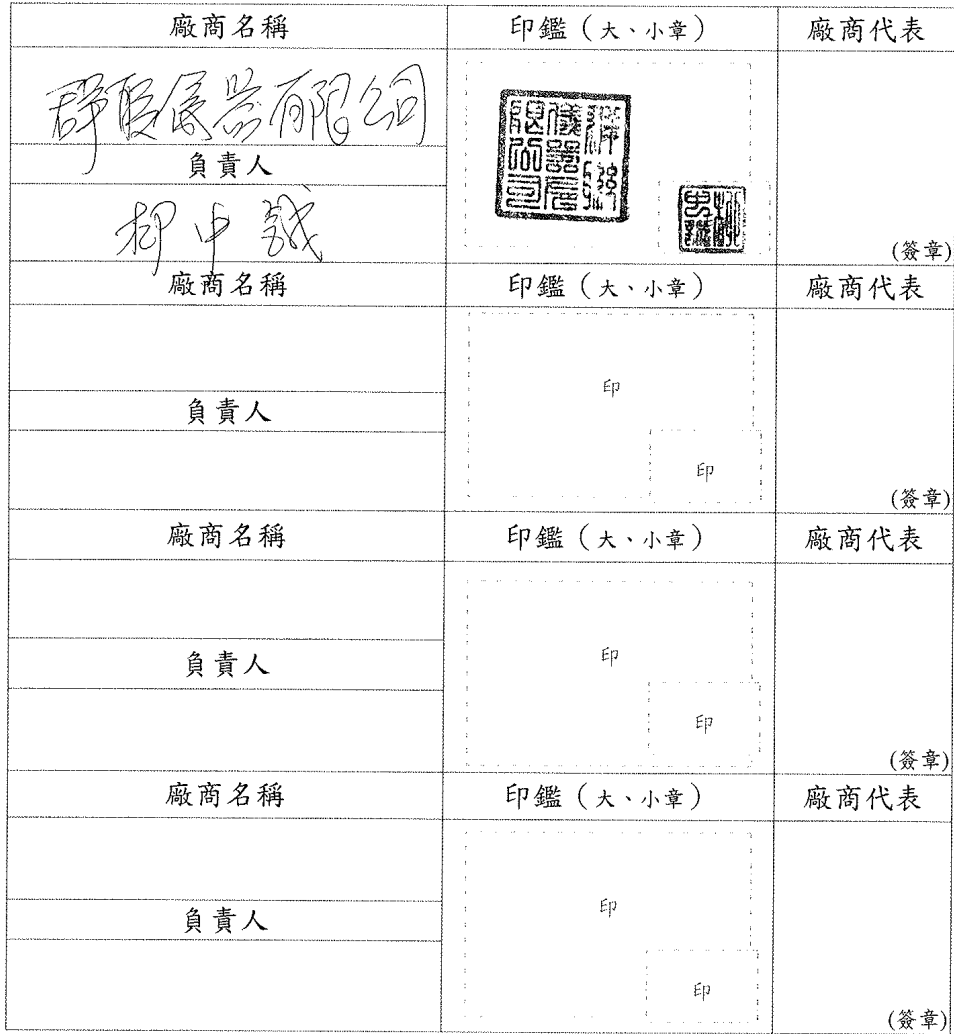 廠商名稱 印鑑（大、小章） 廠商代表
有限公司
負責人
中
(簽章)
廠商名稱 印鑑（大、小章） 廠商代表
印
負責人
印
(簽章)
廠商名稱 印鑑（大、小章） 廠商代表
印
負責人
印
(簽章)
廠商名稱 印鑑（大、小章） 廠商代表
印
負責人
印
(簽章)